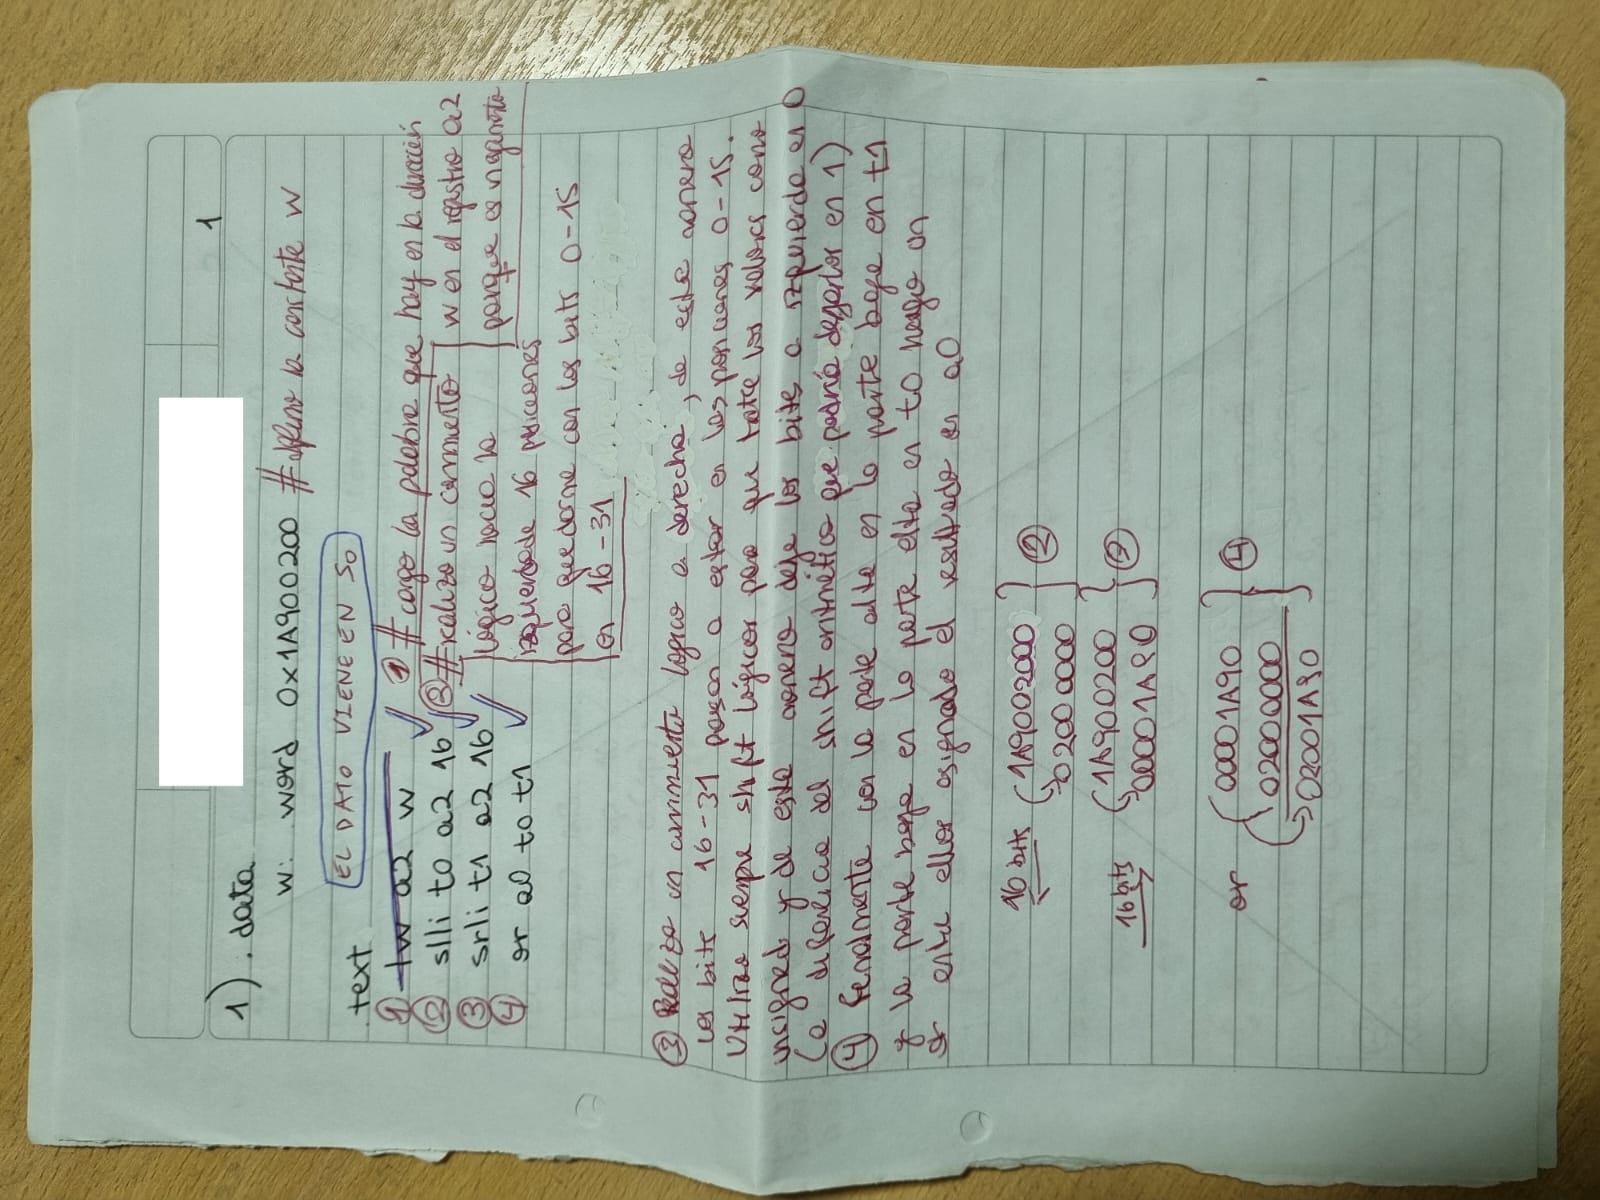 1
1) . data
w: word 0x1A900200 # defino la constante w
EL DATO VIENE EN S0
.text
① lw a2 w ① # cargo la palabra que hay en la dirección
w en el registro a2
porque es
② slli t0 a2 16 ② # realizo un corrimiento
③ srli t1 a2 16 lógico hacia la
④ or a0 t0 t1 izquierda de 16 posiciones
para quedarme con los bits 0-15
en 16-31
③ Realizo un corrimiento lógico a derecha, de esta manera
los bits 16-31 pasan a estar en las posiciones 0-15.
Utilizo siempre shift lógicos para que trate los valores como
unsigned y de esta manera deje los bits a izquierda en 0
(a diferencia del shift aritmético que podría dejarlos en 1)
④ Finalmente con la parte alta en la parte baja en t1
y la parte baja en la parte alta en t0 hago un
or entre ellos asignado el resultado en a0
16 bits 1A9002000 ②
02000000
16 bits 1A900200
00001A90
or 00001A90 ④
02000000
02001A90